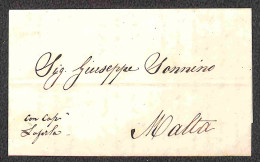 Sig. Giuseppe Sonnino
con cap.ⁿ
Malta